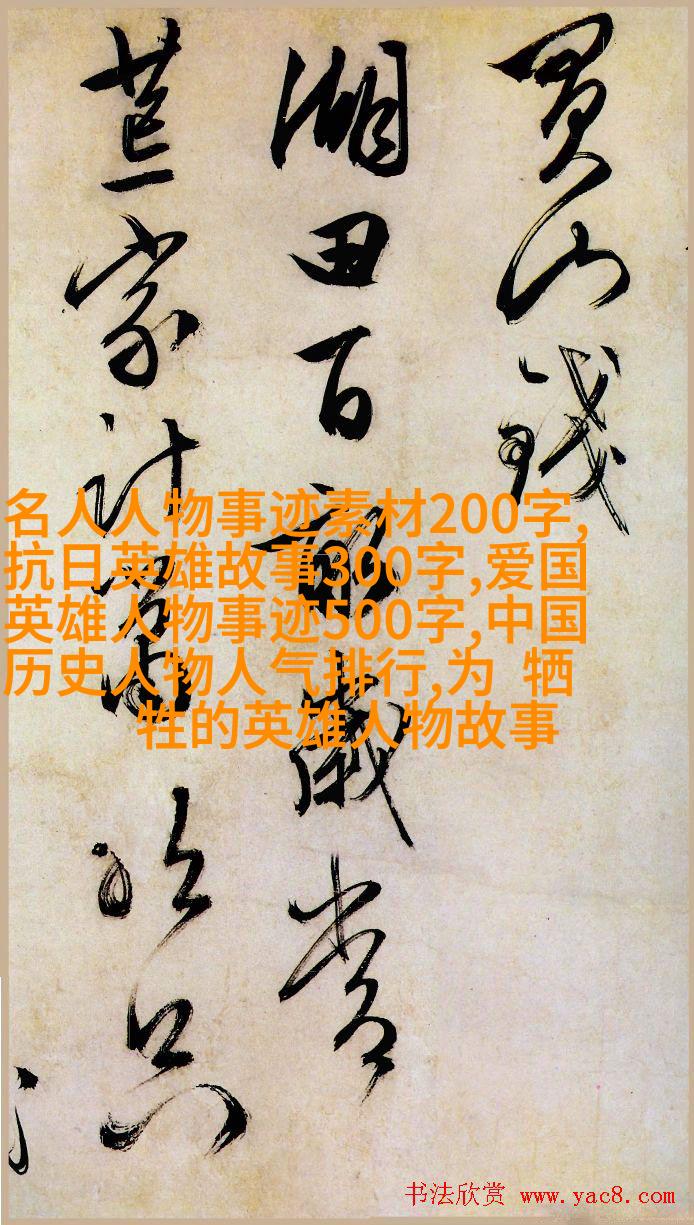 買山錢
湖田百畝歲常
荒家計只
名人人物事迹素材200字,
抗日英雄故事300字,爱国
英雄人物事迹500字,中国
历史人物人气排行,为 牺
牲的英雄人物故事
书法欣赏 www.yac8.com